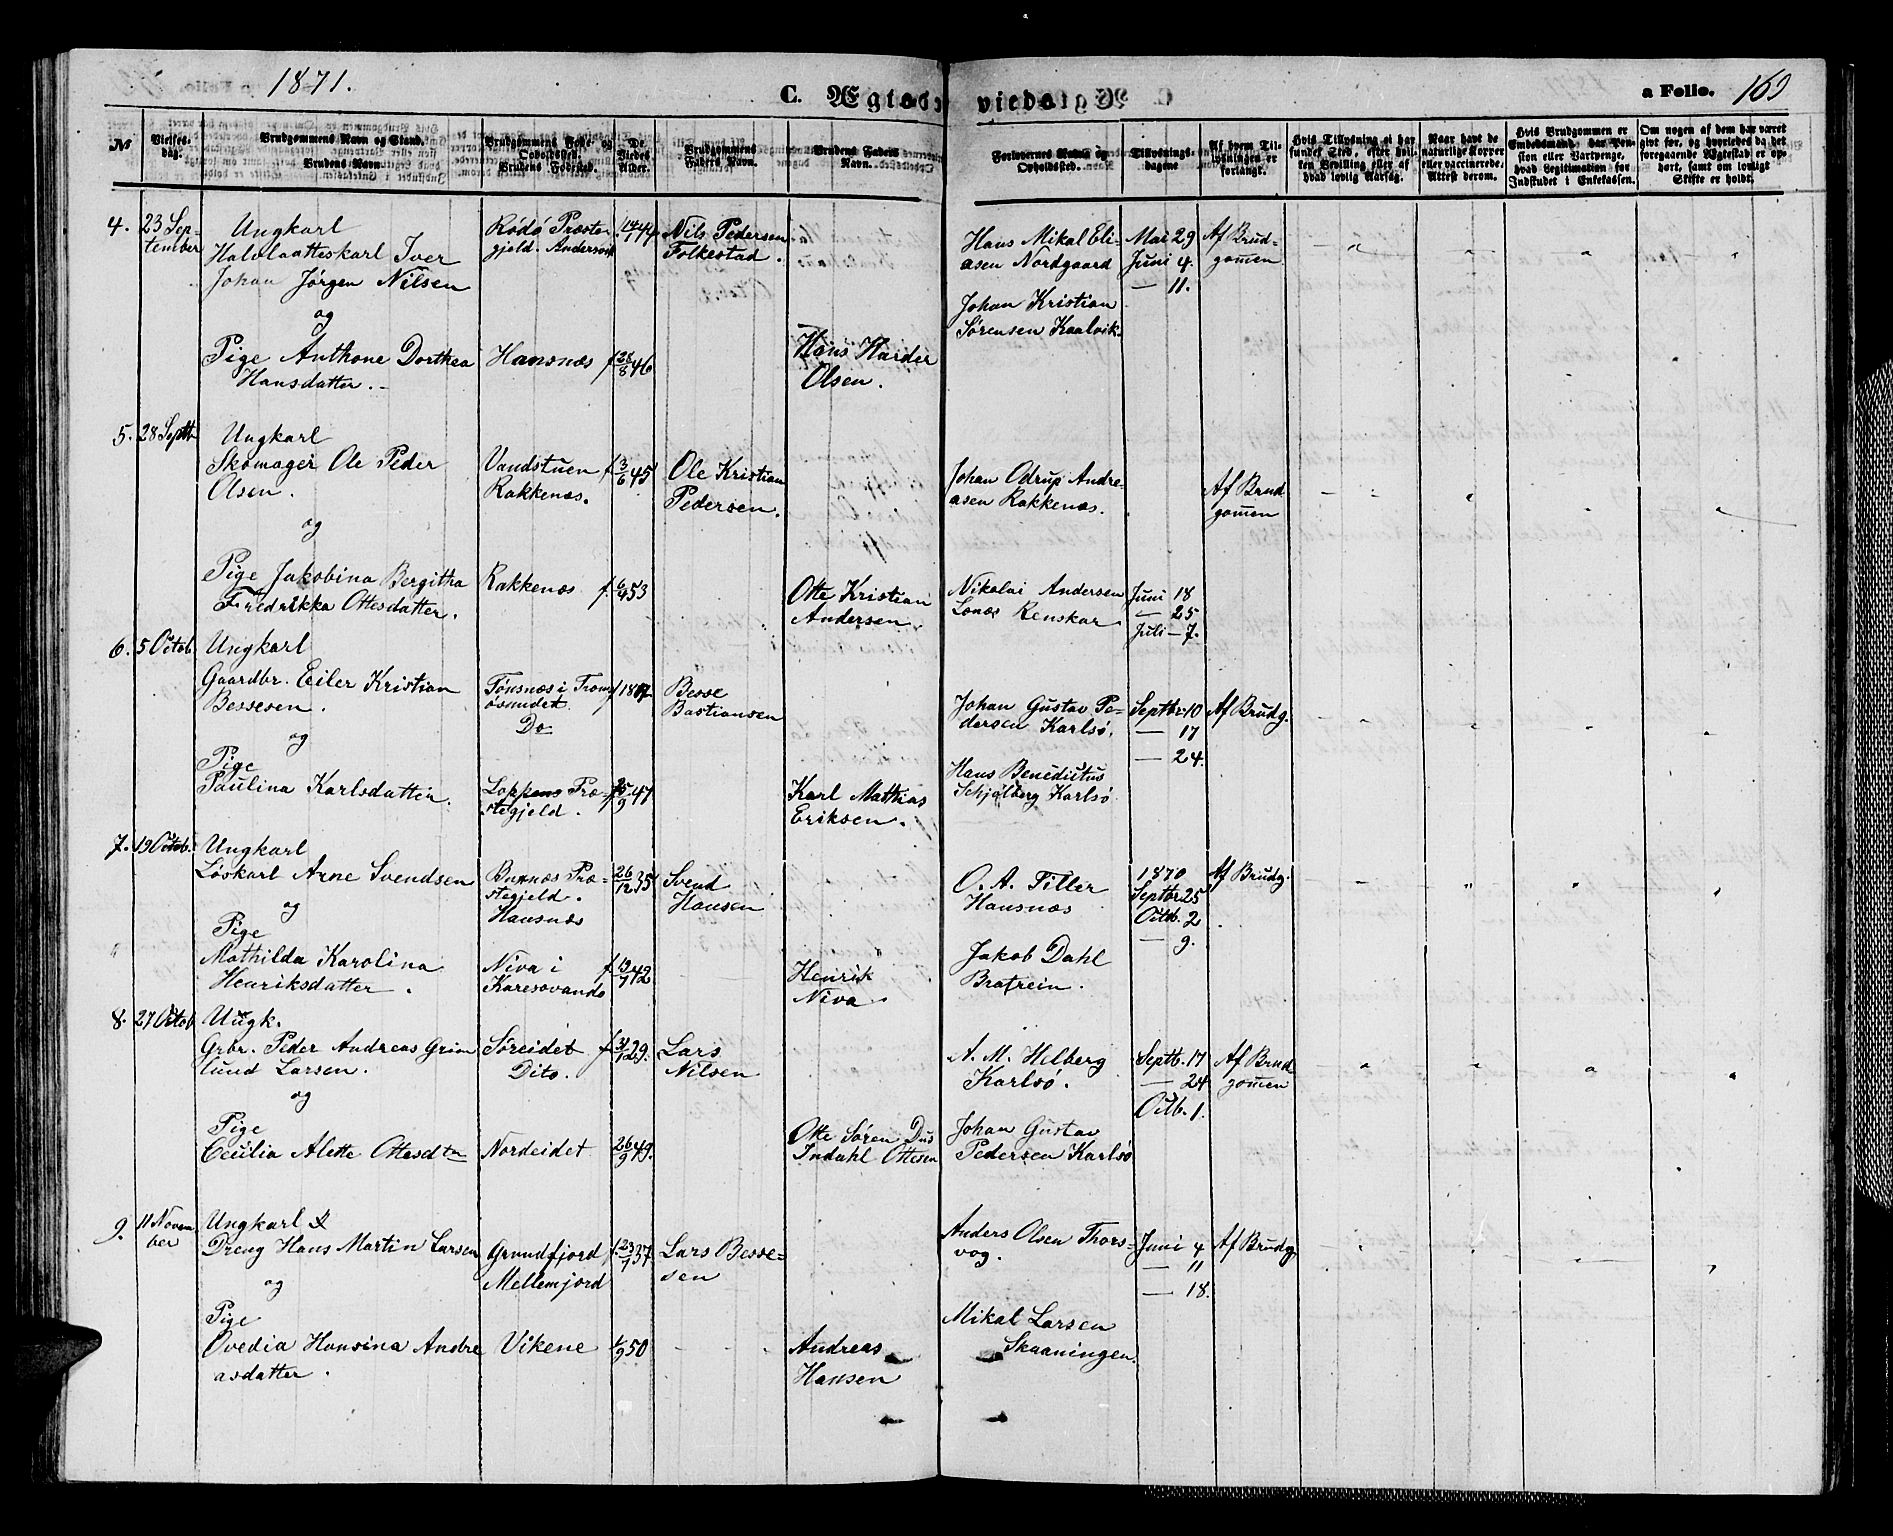 1871.
C. Ægtevviede.
a Folio. 169
№
Vielses-
dag.
Brudgommens Navn og Stand.
Brudens Navn.
Brudgommens Føde- og
Opholdssted.
Brudens Fødested.
De
Viedes
Alder.
Brudgommens
Faders Navn.
Brudens Faders
Navn.
Forlovernes Navn og
Opholdssted.
Tillysnings-
dagene
Af hvem Til-
lysningen er
forlangt.
Hvis Tillysning ei har
fundet Sted, efter hvil-
ken Bevilling eller af
hvad lovlig Aarsag.
Naar havt de
naturlige Kopper
eller vaccinerede.
Attest derom.
Hvis Brudgommen er
Embedsmand, har Pen-
sion eller Vartpenge,
hvad Legitimation for
Indskudet i Enkekassen.
Om nogen af dem har været
givt før, og hvorledes da det
foregaaende Ægteskab er op-
hørt, samt om lovligt
Skifte er holdt.
4. 23 Sep-
tember
Ungkarl
Halvlaatteskarl Iver
Johan Jørgen Nilsen
og
Pige Anthone Dorthea
Hansdatter.
Rødø Præste-
gjeld. Andersvik
Hansnæs f. 28/8 46
Nils Pedersen
Folkestad.
Hans Harder
Olsen.
Hans Mikal Eli-
asen Nordgaard
Johan Kristian
Sørensen Kaalvik.
Mai 29
Juni 4.
— 11.
Af Brud-
gomen
5. 28 Septb
Ungkarl
Skomager Ole Peder
Olsen.
og
Pige Jakobina Bergitha
Fredrikka Ottesdatter.
Vandstuen f. 3/6 45
Rakkenæs.
Rakkenæs f. 6/4 53
Ole Kristian
Pedersen.
Otte Kristian
Andersen.
Johan Odrup Andre-
asen Rakkenæs.
Nikolai Andersen
Lonæs Renskar
Juni 18
— 25
Juli — 7.
Af Brud
gomen
6. 5 Octob.
Ungkarl
Gaardbr. Eiler Kristian
Bessesen.
og
Pige
Paulina Karlsdatter.
Tønsnæs i Trom-
øsundet.
Do
Loppens Præ-
stegjeld. 25/9 47
Besse
Bastiansen
Karl Mathias
Eriksen.
Johan Gustav Pe-
dersen Karlsø.
Hans Benedictus
Schjølberg Karlsø
Septbr. 10
— 17
— 24.
Af Brudg.
7. 19 Octob.
Ungkarl
Løskarl Arne Svendsen
og
Pige
Mathilda Karolina
Henriksdatter.
Buxnæs Præ-
stegjeld. 26/12 35
Hansnæs
Niva i f. 19/7 42
Karesovando
Svend
Hansen
Henrik
Niva.
O. A. Tiller
Hansnæs
Jakob Dahl
Bratrein.
1870
Septbr 25
Octb. 2
— 9.
Af Brudg.
8. 27 Octob
Ungk.
Grbr. Peder Andreas Grim
lund Larsen.
og
Pige
Cecilia Alette Ottesdtr
Søreidet f. 31/12 29.
Dito.
Nordeidet 26/9 49.
Lars
Nilsen
Otte Søren Dus
Indahl Ottesen
A. M. Hilberg
Karlsø.
Johan Gustav
Pedersen Karlsø
Septb. 17
— 24
Octb. 1.
Af Brud
gomen
9. 11 Novem
ber
Ungkarl
Dreng Hans Martin Larsen
og
Pige
Ovedia Hansina Andre
asdatter.
Grundfjord f. 23/7 37
Mellemjord
Vikene 1/9 50
Lars Besse-
sen
Andreas
Hansen
Anders Olsen Thors-
vog.
Mikal Larsen
Skaaningen.
Juni 4
— 11
— 18.
Af Brudg.